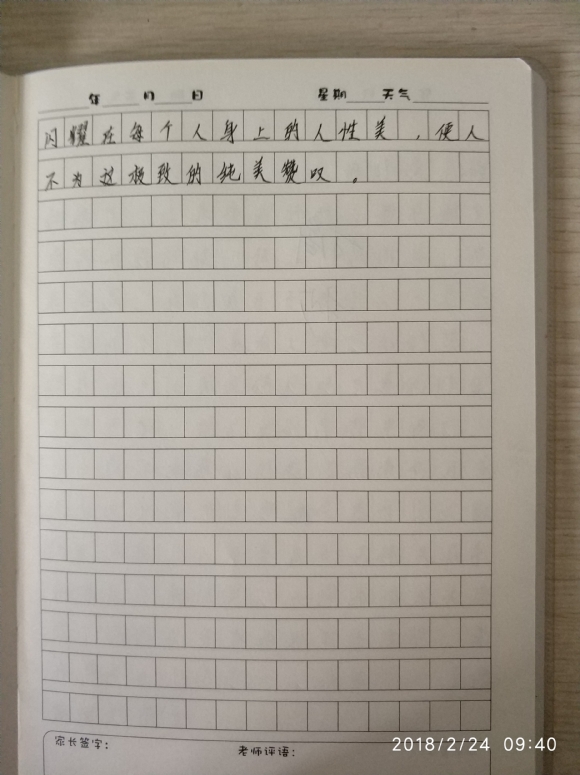 年 月 日 星期 天气
闪耀在每个人身上的人性美，使人
不为这极致的纯美赞叹。
家长签字：
老师评语：
2018/2/24 09:40